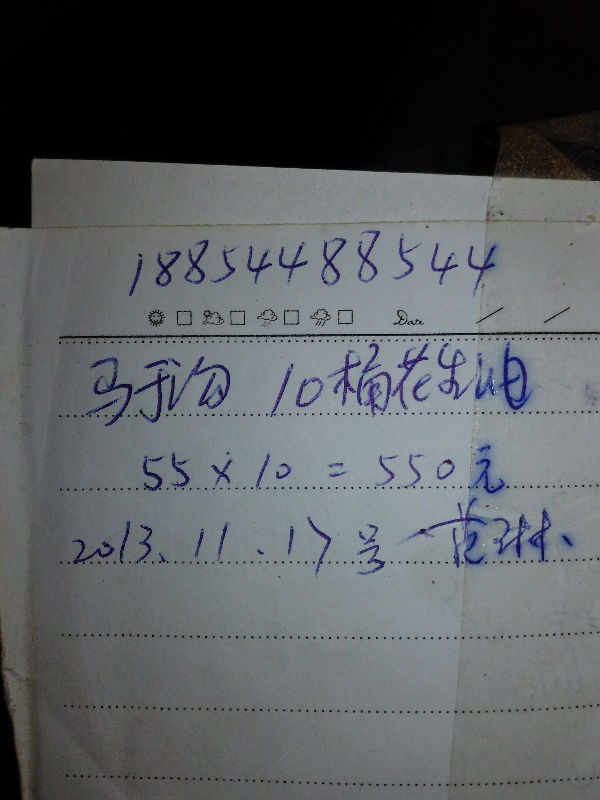 18854488544
Date / /
马于沟 10桶花生油
55×10=550元
2013.11.17号 范琳